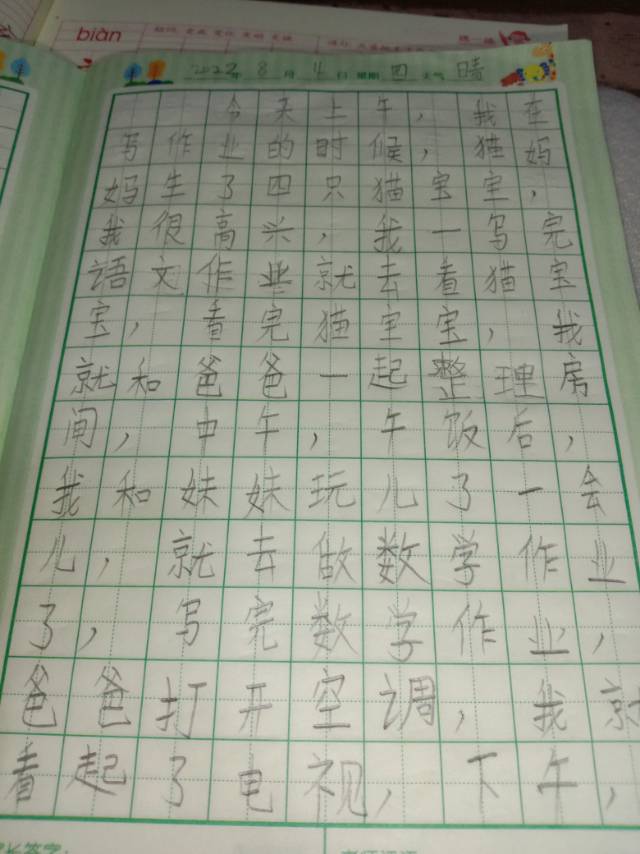 biàn
2022年8月4日 星期四 天气晴
今天上午，我在
写作业的时候，猫妈
妈生了四只猫宝宝，
我很高兴，我一写完
语文作业就去看猫宝
宝，看完猫宝宝，我
就和爸爸一起整理房
间，中午，午饭后，
我和妹妹玩儿了一会
儿，就去做数学作业
了，写完数学作业，
爸爸打开空调，我就
看起了电视，下午，
长签字：